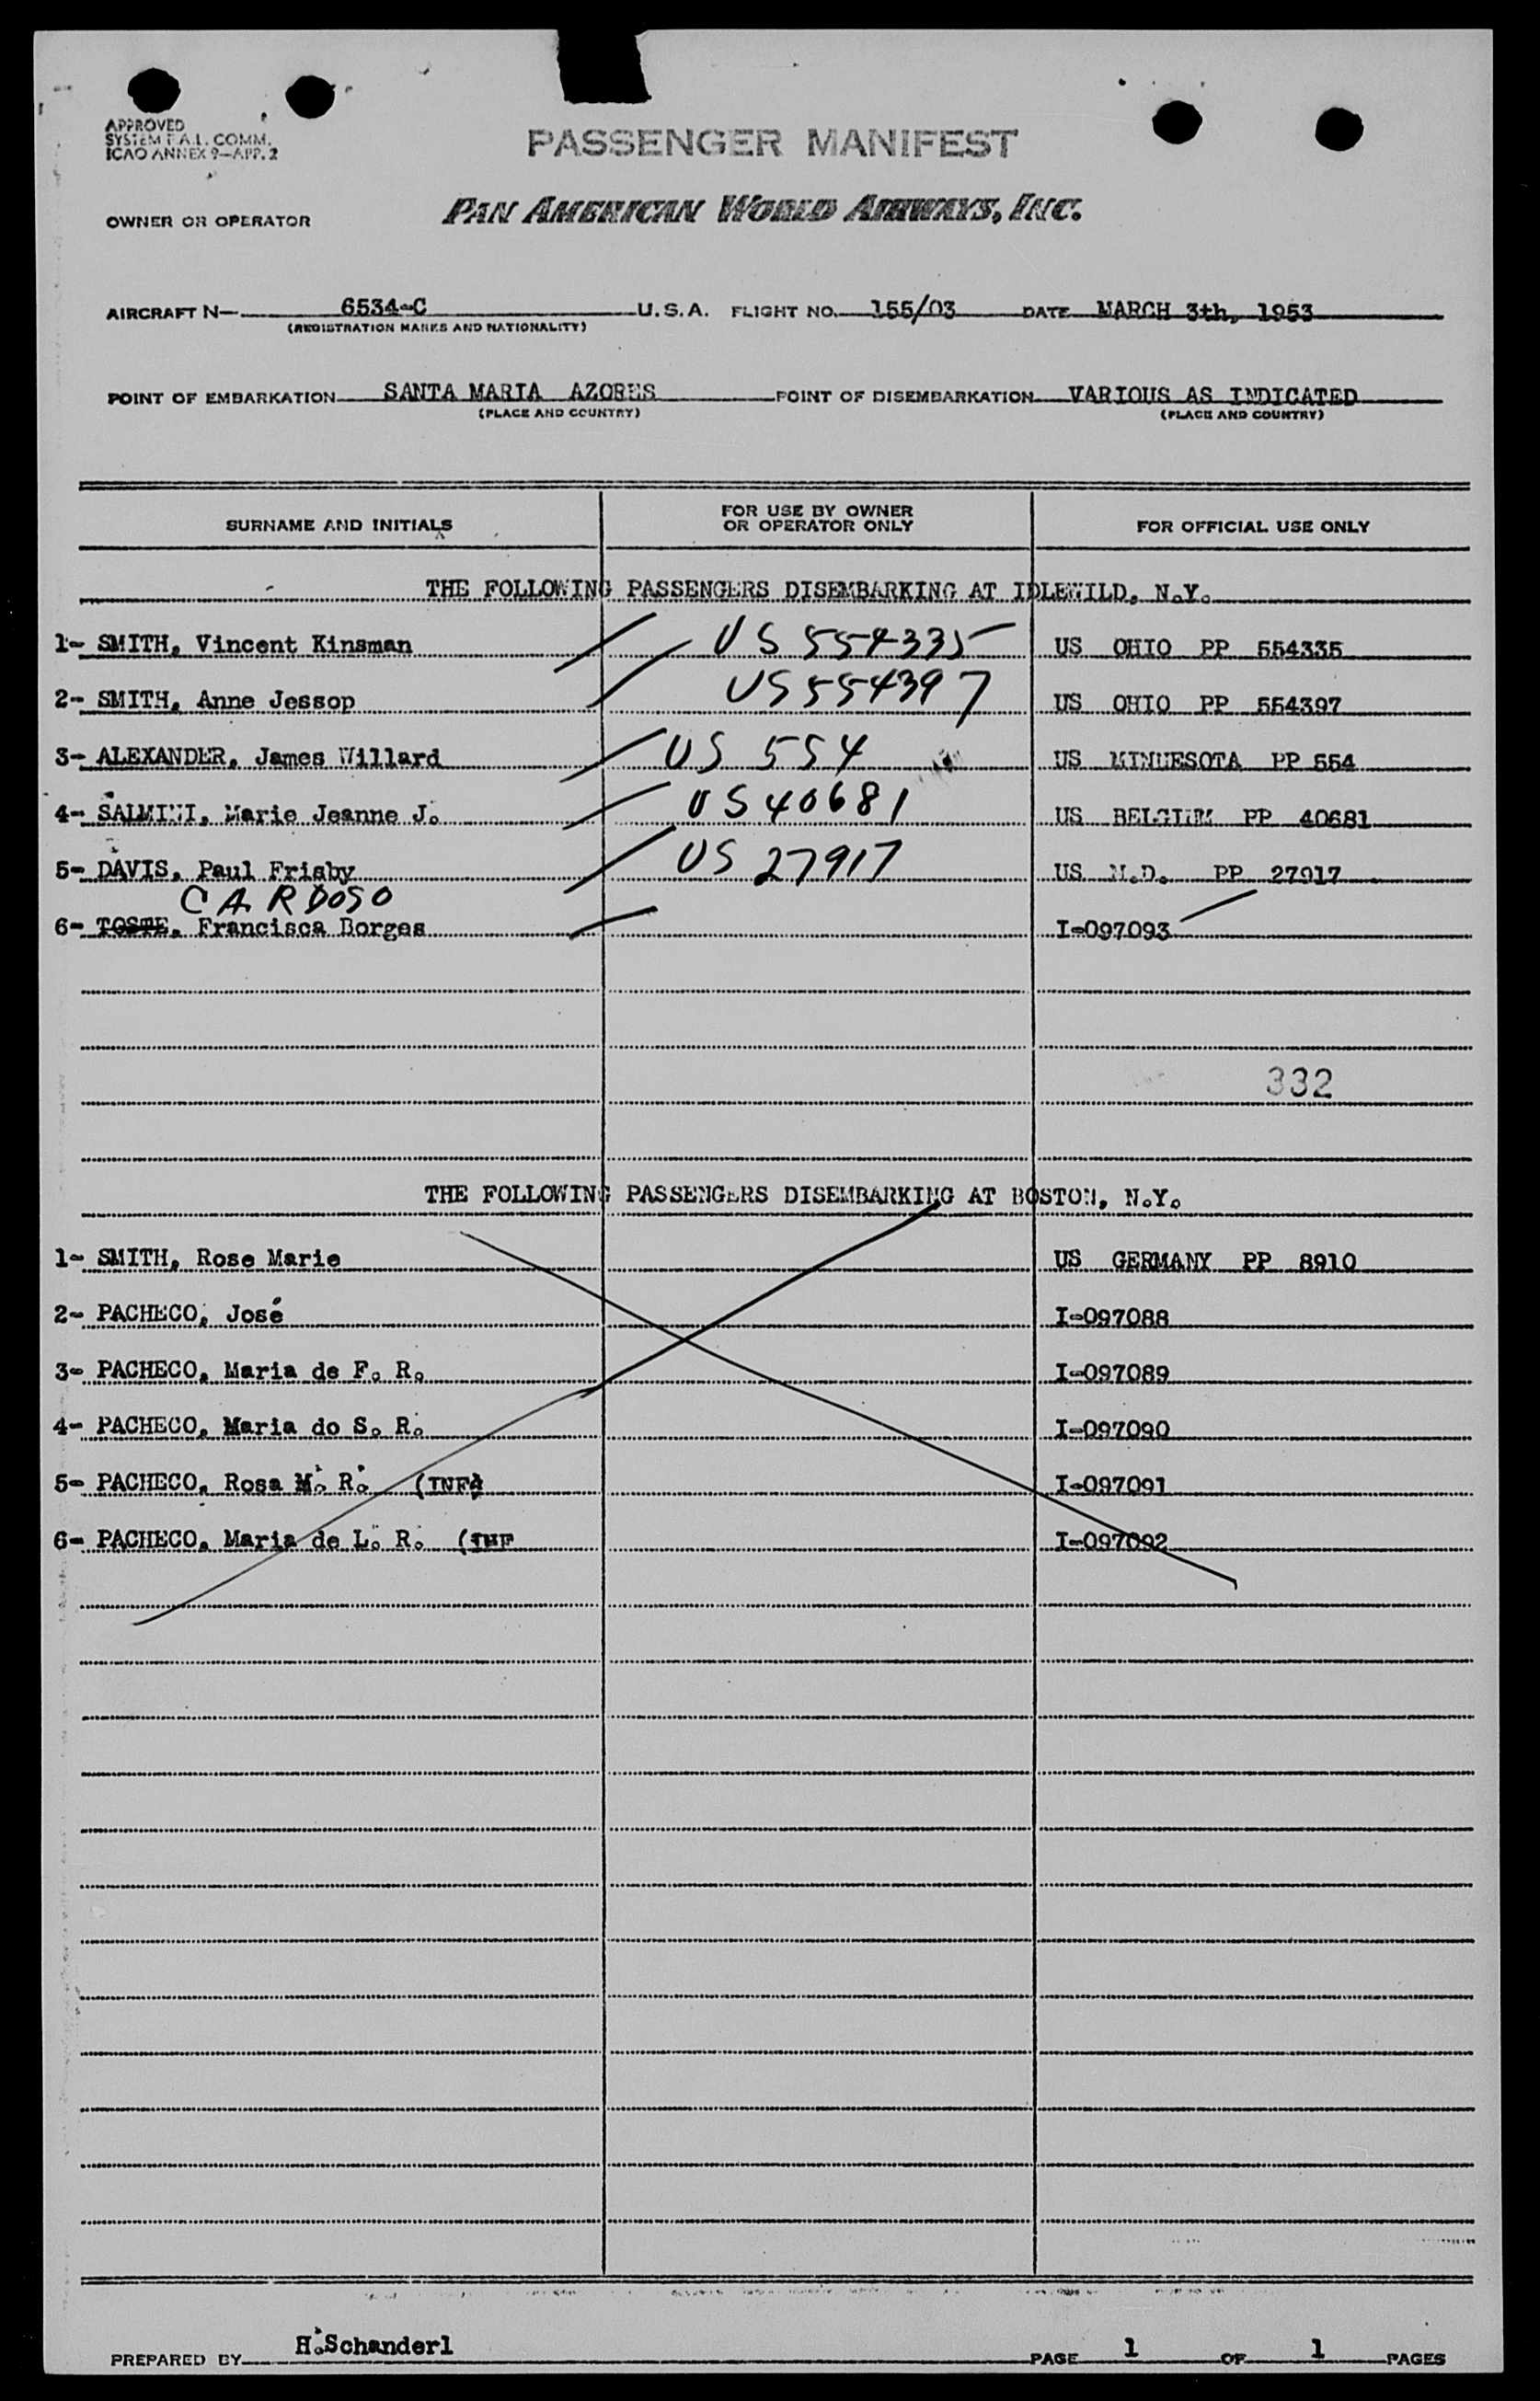 APPROVED
SYSTEM F.A.L. COMM.
ICAO ANNEX 9—APP. 2
PASSENGER MANIFEST
OWNER OR OPERATOR PAN AMERICAN WORLD AIRWAYS, INC.
AIRCRAFT N— 6534-C U.S.A. FLIGHT NO. 155/03 DATE MARCH 3th, 1953
(REGISTRATION MARKS AND NATIONALITY)
POINT OF EMBARKATION SANTA MARIA AZORES POINT OF DISEMBARKATION VARIOUS AS INDICATED
(PLACE AND COUNTRY) (PLACE AND COUNTRY)
SURNAME AND INITIALS FOR USE BY OWNER OR OPERATOR ONLY FOR OFFICIAL USE ONLY
THE FOLLOWING PASSENGERS DISEMBARKING AT IDLEWILD, N.Y.
1- SMITH, Vincent Kinsman US 554335 US OHIO PP 554335
2- SMITH, Anne Jessop US 554397 US OHIO PP 554397
3- ALEXANDER, James Willard US 554 US MINNESOTA PP 554
4- SALMINI, Marie Jeanne J. US 40681 US BELGIUM PP 40681
5- DAVIS, Paul Frisby US 27917 US PP 27917
CARDOSO
6- TOSTE, Francisca Borges I-097093
332
THE FOLLOWING PASSENGERS DISEMBARKING AT BOSTON, N.Y.
1- SMITH, Rose Marie US GERMANY PP 8910
2- PACHECO, José I-097088
3- PACHECO, Maria de F. R. I-097089
4- PACHECO, Maria do S. R. I-097090
5- PACHECO, Rosa M. R. (INF) I-097091
6- PACHECO, Maria de L. R. (INF I-097092
PREPARED BY H.Schanderl PAGE 1 OF 1 PAGES